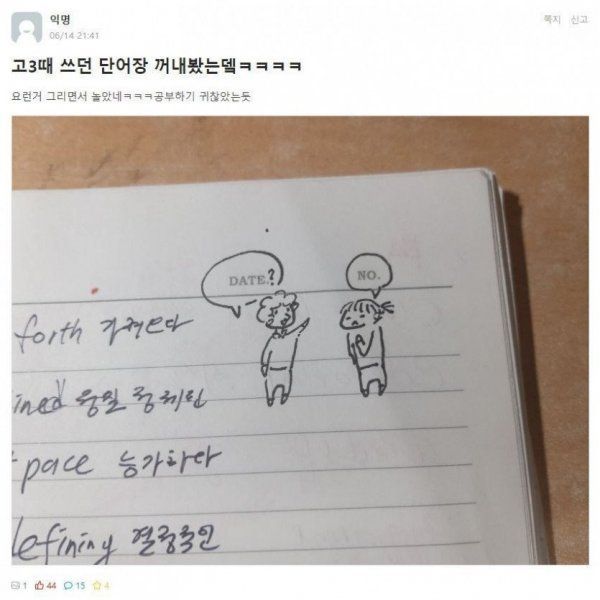 익명
06/14 21:41
쪽지 신고
고3때 쓰던 단어장 꺼내봤는뎈ㅋㅋㅋㅋ
요런거 그리면서 놀았네ㅋㅋㅋ공부하기 귀찮았는듯
DATE.?
NO.
forth 가져오다
ined
pace 능가하다
efining 결정적인
1 44 15 4